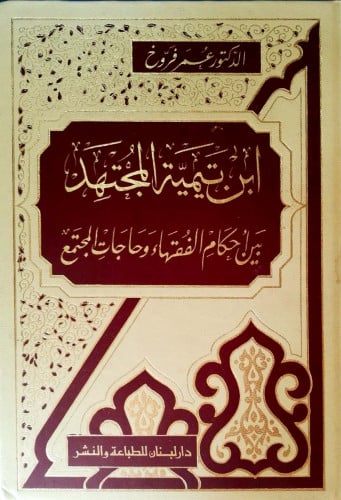 الدكتور عمر فروخ
ابن تيمية المجتهد
بين أحكام الفقهاء وحاجات المجتمع
دار لبنان للطباعة والنشر